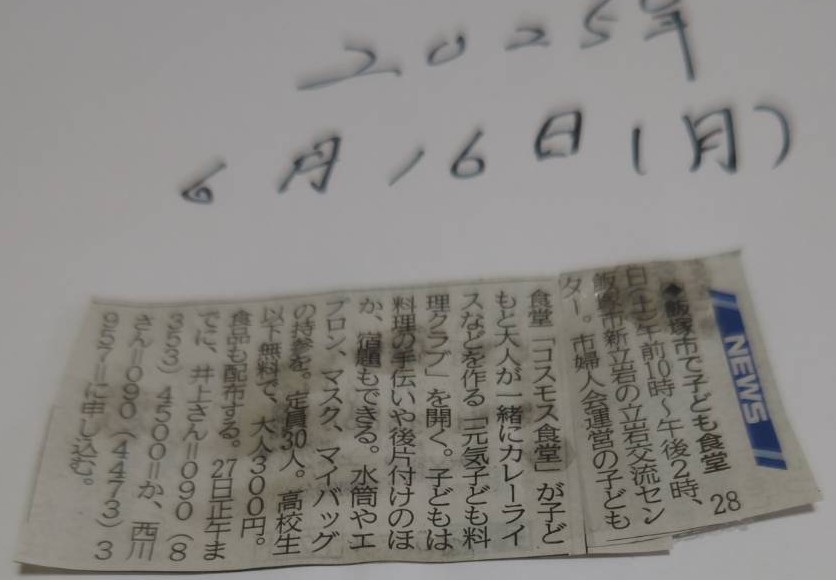 2025年
6月16日(月)
NEWS
◆飯塚市で子ども食堂 28
日(土)午前10時～午後2時、
飯塚市新立岩の立岩交流セン
ター。市婦人会運営の子ども
食堂「コスモス食堂」が子ど
もと大人が一緒にカレーライ
スなどを作る「元気子ども料
理クラブ」を開く。子どもは
料理の手伝いや後片付けのほ
か、宿題もできる。水筒やエ
プロン、マスク、マイバッグ
の持参を。定員30人。高校生
以下無料で、大人300円。
食品も配布する。27日正午ま
でに、井上さん＝090(8
353)4500＝か、西川
さん＝090(4473)3
957＝に申し込む。